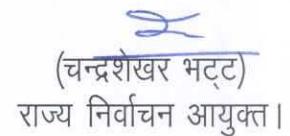 (चन्द्रशेखर भट्ट)
राज्य निर्वाचन आयुक्त।